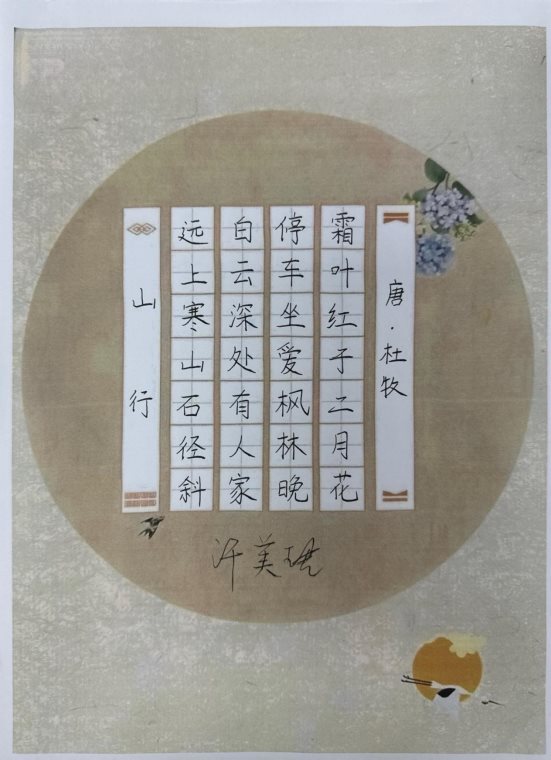 山行
远上寒山石径斜
白云深处有人家
停车坐爱枫林晚
霜叶红于二月花
唐·杜牧
许美珺